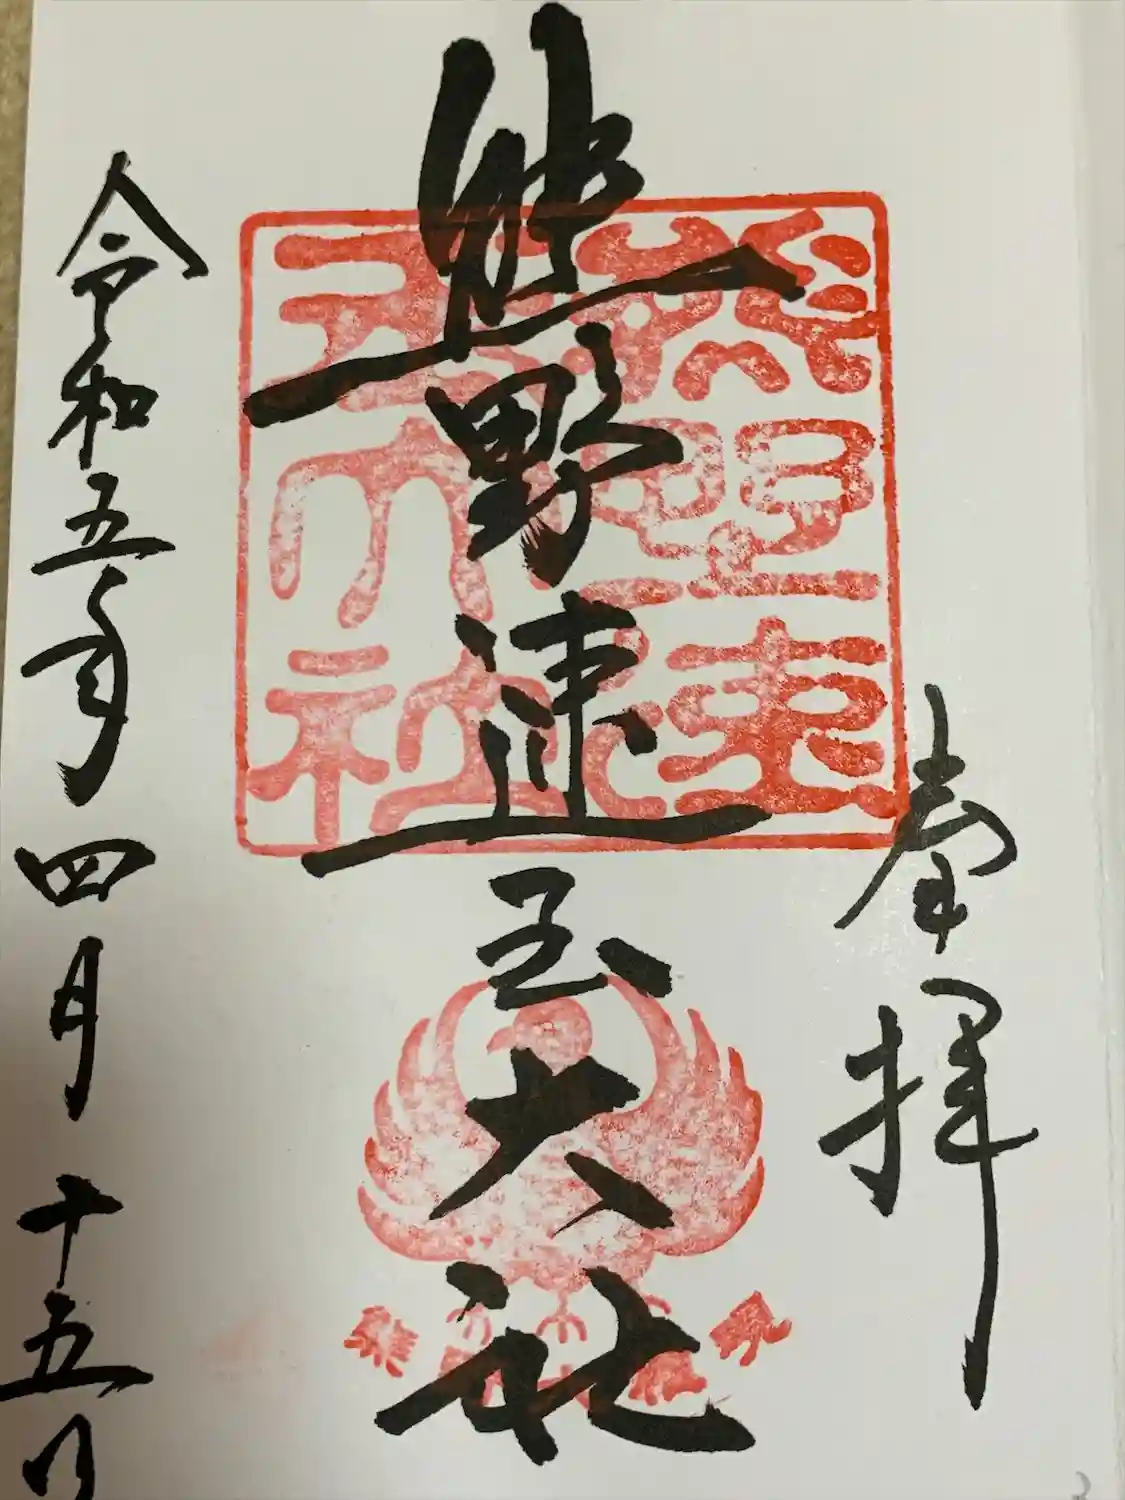 奉拝
熊野速玉大社
熊野速玉大社
令和五年四月十五日